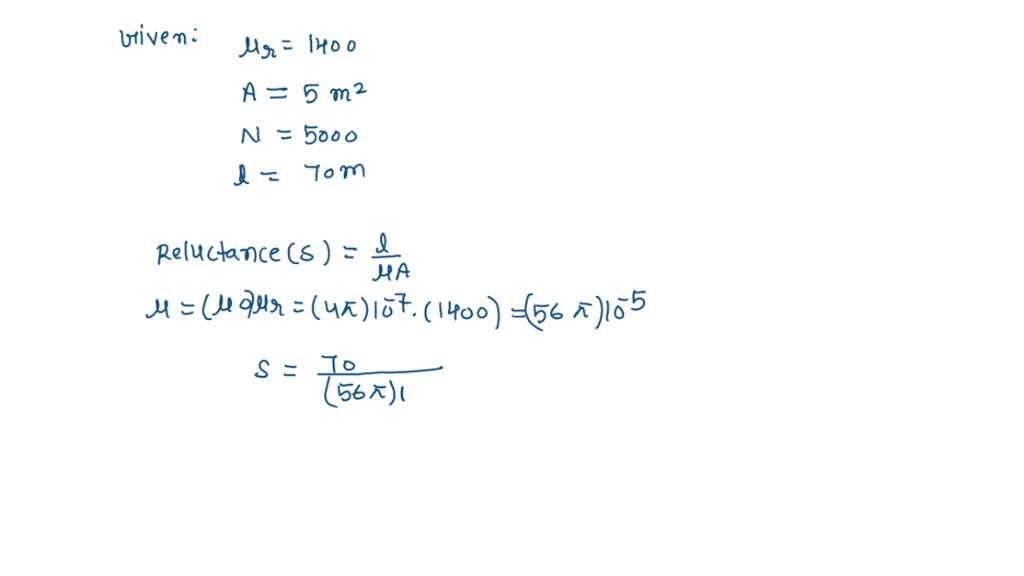 Given: μr = 1400
A = 5 m²
N = 5000
l = 70m
Reluctance(S) = l/μA
μ = (μ0)μr = (4π)10⁻⁷.(1400) = (56 π)10⁻⁵
S = 70/(56π)1